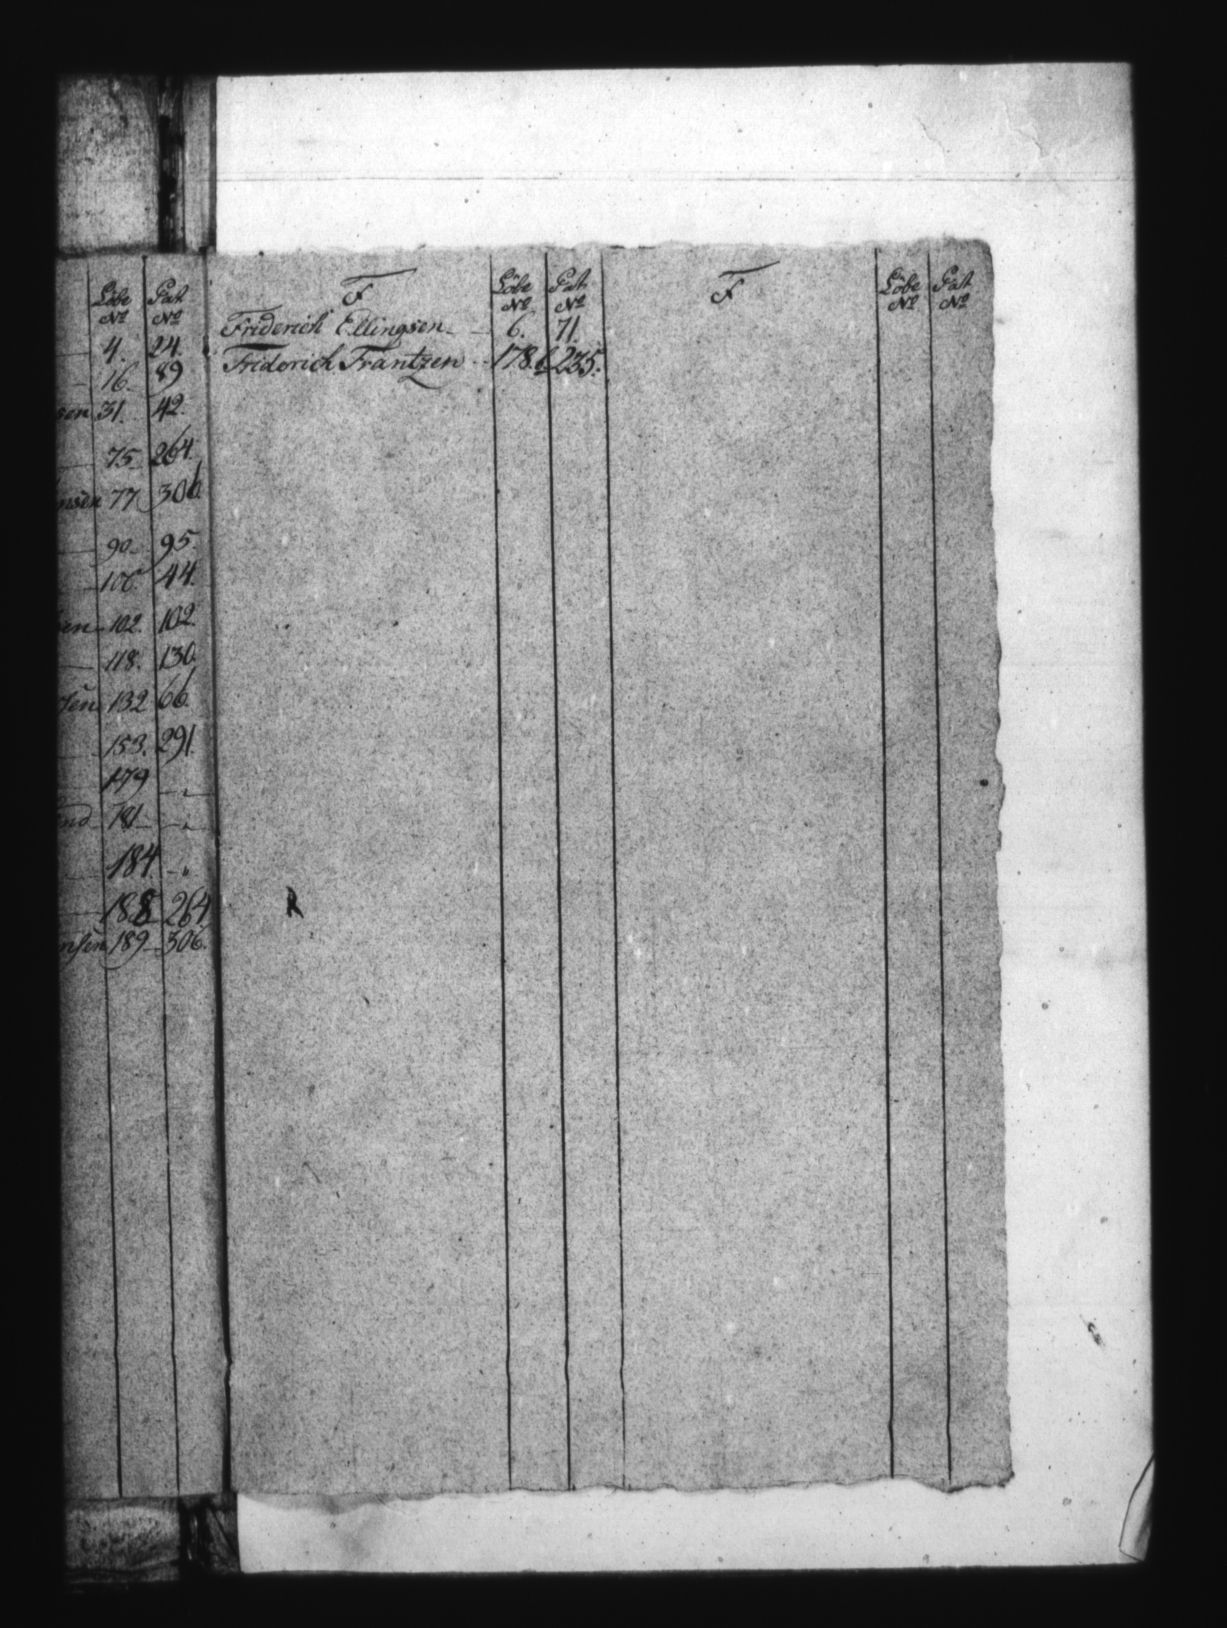 Löbe Pat
No No
4. 24.
16. 89
sen 31. 42.
75 264.
nsen 77 306.
90. 95.
100. 44.
sen 102. 102.
118. 130.
132 66.
153. 291.
179 - "
181 - "
184. - "
188 264
nsen 189 306.
F Löbe Pat
No No
Friderich Ellingsen 6. 71.
Friderich Frantzen 178. 235.
F Löbe Pat
No No